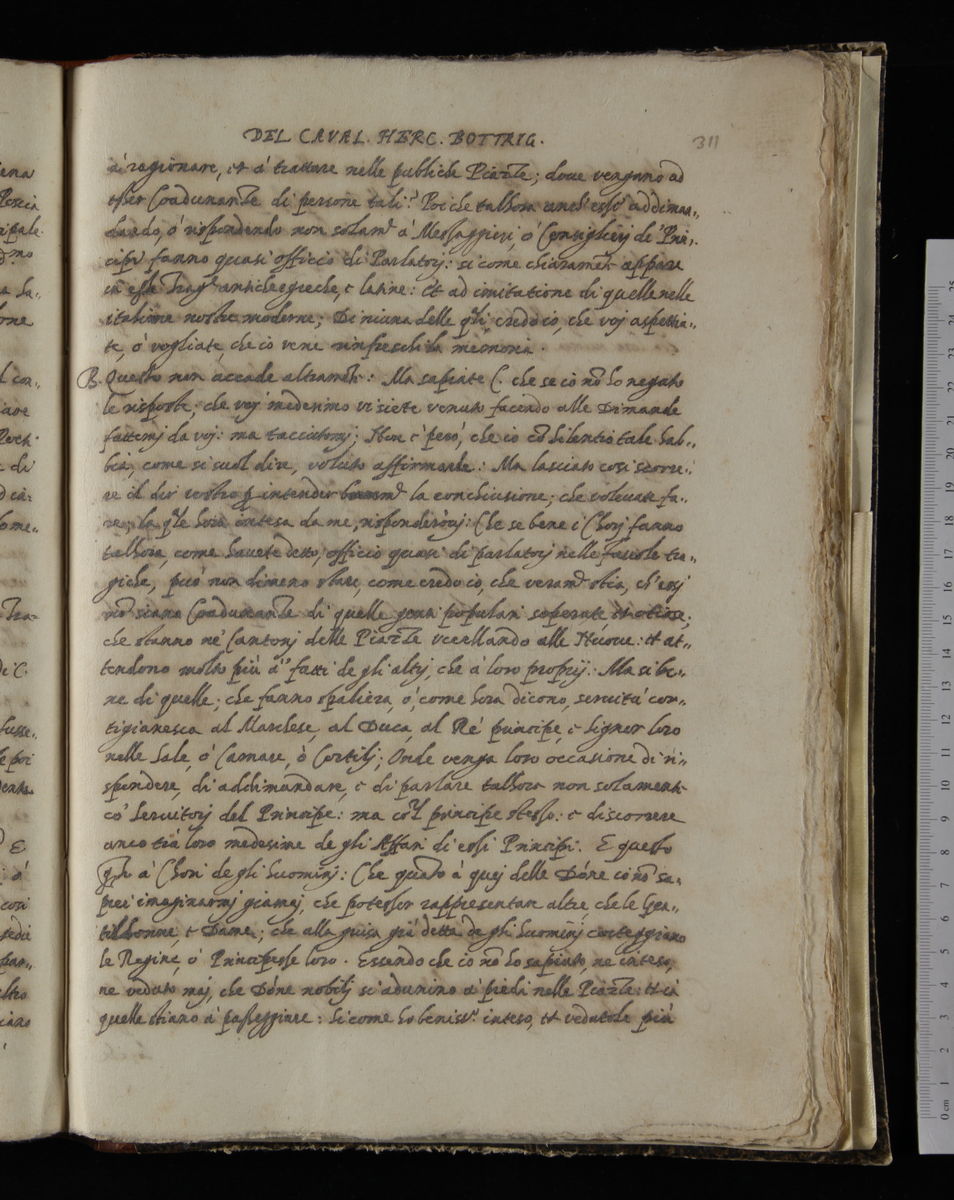 DEL CAVAL. HERC. BOTTRIG.
311
à ragionare, et à trattare nelle publiche Piazze; doue vengono ad
esser Coadunanze di persone tali? Poi che talhora anch'essi addiman,,
dando, ò rispondendo non solam.te à Messaggieri, ò Consiglierj de' Prin,,
cipi fanno quasi officio di Parlatorj: si come chiaram.te appare
in esse Trag.e antiche greche, e latine: et ad imitatione di quelle nelle
italiane nostre moderne; Di niuna delle q.li credo io, che voj aspettia,,
te, ò vogliate, che io vene rinfreschi la memoria.
B. Questo non accade altram.te: Ma sapiate C. che se io nõ ho negato
le risposte, che voj medesimo vi siete venuto facendo alle Dimande
fattemj da voj: ma tacciutomj; Non è però, che io cõ silentio tale hab,,
bia, come si suol dire, voluto affirmarle: Ma lasciato cosi scorre,,
re il dir vostro p intender la conchiusione; che voleuate fa,,
re; la q.le hora intesa da me, risponderòvj: Che se bene i Chorj fanno
talhora, come hauete detto, officio quasi di parlatorj nelle fauole tra,,
giche, può non dimeno stare, come credo io, che veram.te stia, ch'essj
nõ siano Coadunanze di quelle genti popolari et otiose;
che stanno ne' Cantonj delle Piazze vccellando alle Nuoue: et at,,
tendono molto più à fatti de gli altrj, che à loro proprij. Ma si be,,
ne di quelle; che fanno spaliera, ò, come hora dicono, seruitù cor,,
tigianesca al Marchese, al Duca, al Rè principe, e signor loro
nelle Sale, ò Camare, ò Cortilj; Onde venga loro occasione di ri,,
spondere, di addimandare, e di parlare talhora non solamente
co' seruitorj del Principe: ma co'l principe stesso: e discorrere
anco trà loro medesime de gli Affari di essi Principi. E questo
à Chori de gli huominj: Che quãto à quej delle Dõne io nõ sa,,
prei imaginarmj giamaj, che potesser rappresentare altre che le Gen,,
tildonne, e Dame; che alla guisa già detta de gli huominj corteggiano
le Regine, ò Principesse loro. Essendo che io nõ ho sapiuto, ne inteso,
ne veduto maj, che Dõne nobilj si adunino à piedi nelle Piazze: et iui
quelle stiano à passeggiare: si come ho beniss.o inteso, et vedutole più